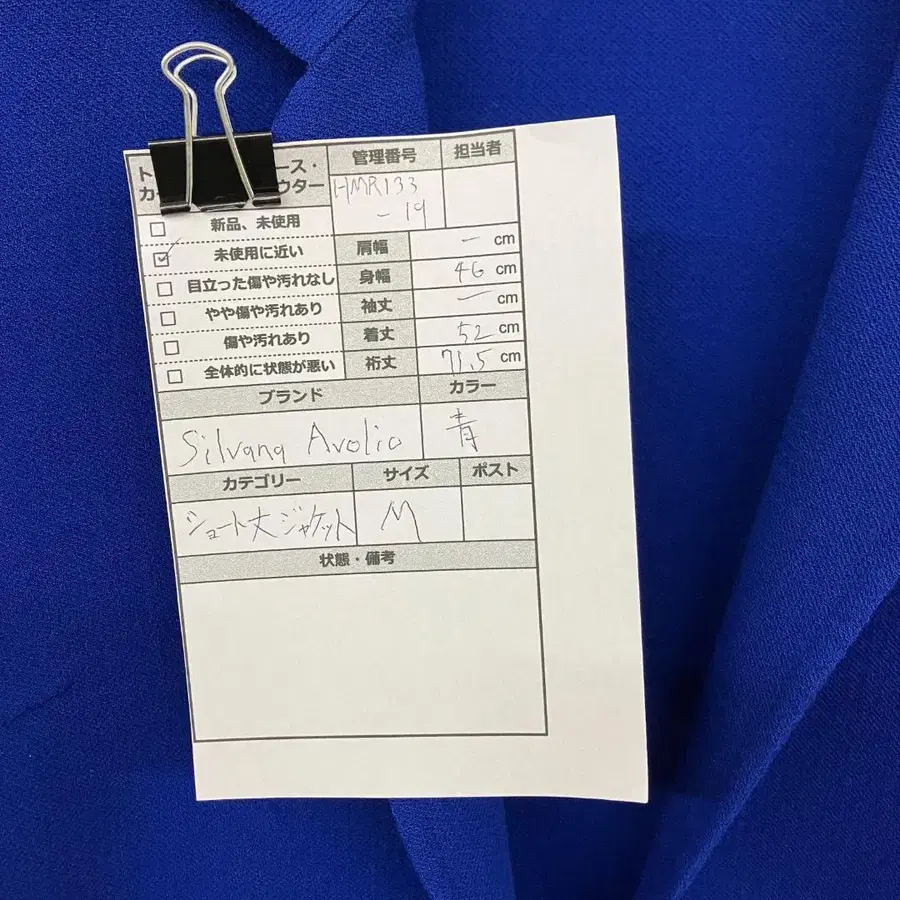 ト ース・
カー ウター
管理番号 担当者
HMR133
-19
□ 新品、未使用
☑ 未使用に近い
□ 目立った傷や汚れなし
□ やや傷や汚れあり
□ 傷や汚れあり
□ 全体的に状態が悪い
肩幅 ー cm
身幅 46 cm
袖丈 ー cm
着丈 52 cm
裄丈 71.5 cm
ブランド カラー
Silvana Avolio 青
カテゴリー サイズ ポスト
ショート丈ジャケット M
状態・備考